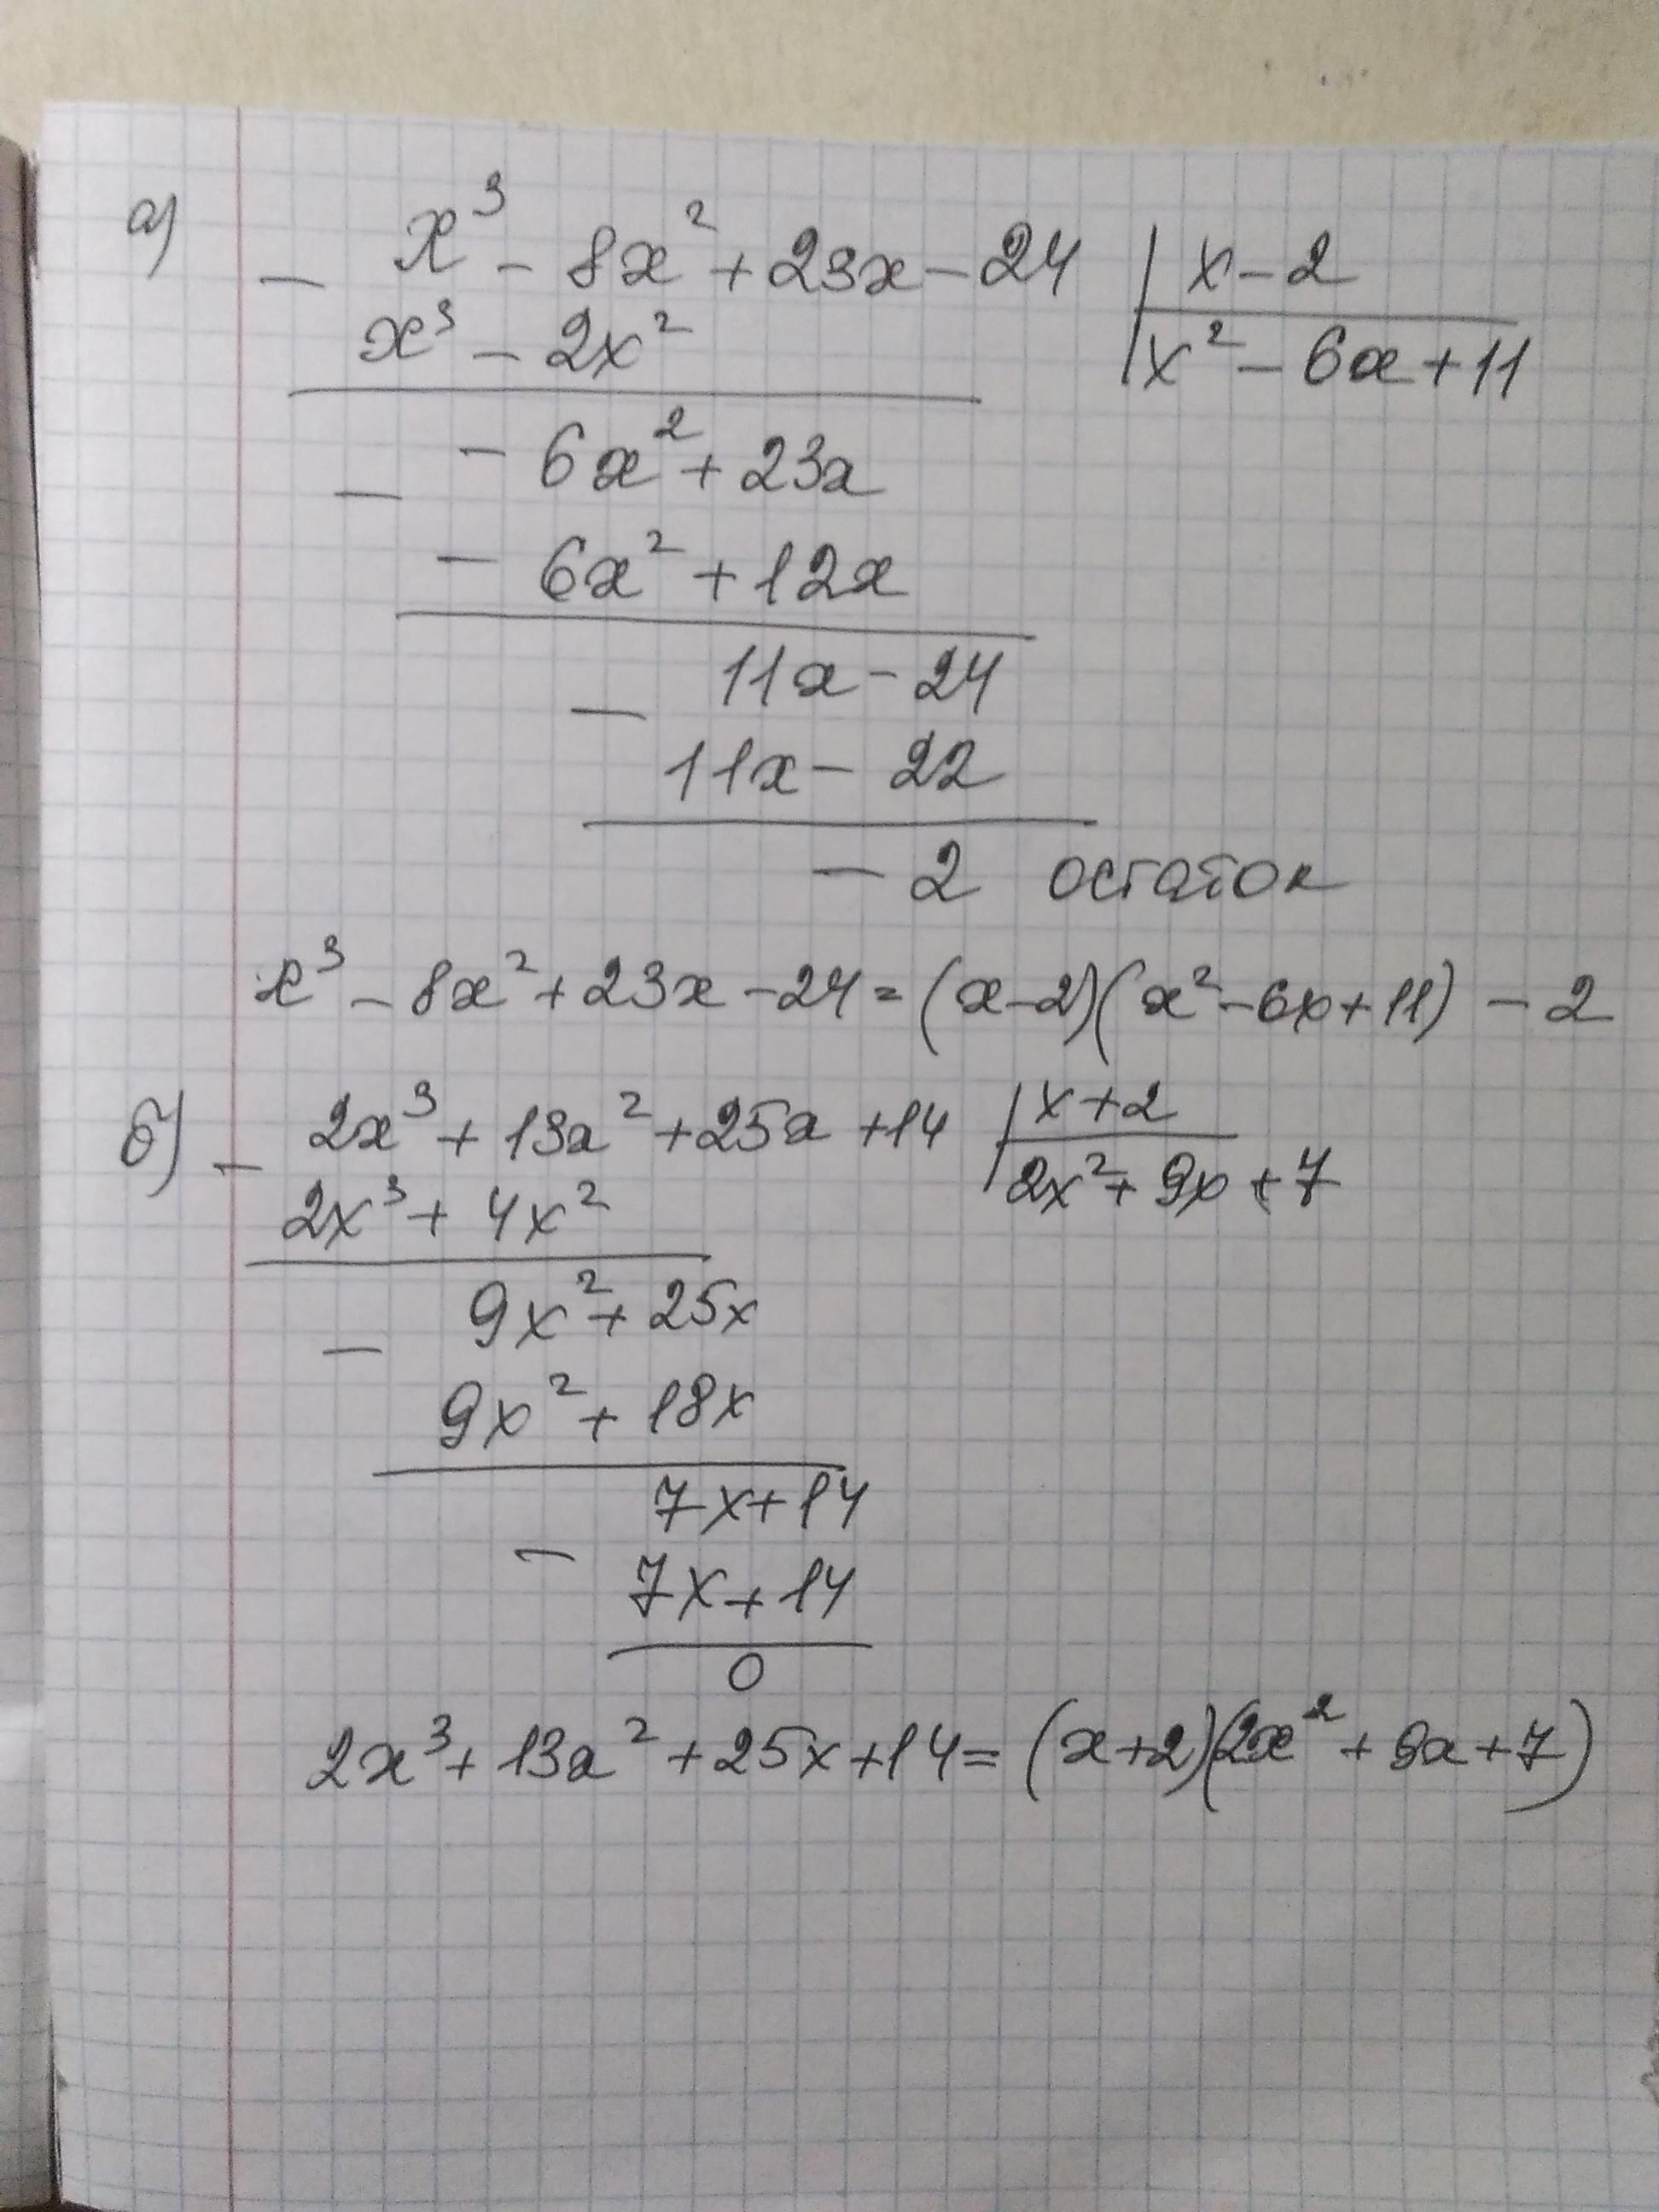 а) - x³ - 8x² + 23x - 24 | x - 2
x³ - 2x² | x² - 6x + 11
- 6x² + 23x
-
- 6x² + 12x
11x - 24
-
11x - 22
- 2 остаток
x³ - 8x² + 23x - 24 = (x - 2)(x² - 6x + 11) - 2
б) - 2x³ + 13x² + 25x + 14 | x + 2
2x³ + 4x² | 2x² + 9x + 7
9x² + 25x
-
9x² + 18x
7x + 14
-
7x + 14
0
2x³ + 13x² + 25x + 14 = (x + 2)(2x² + 9x + 7)